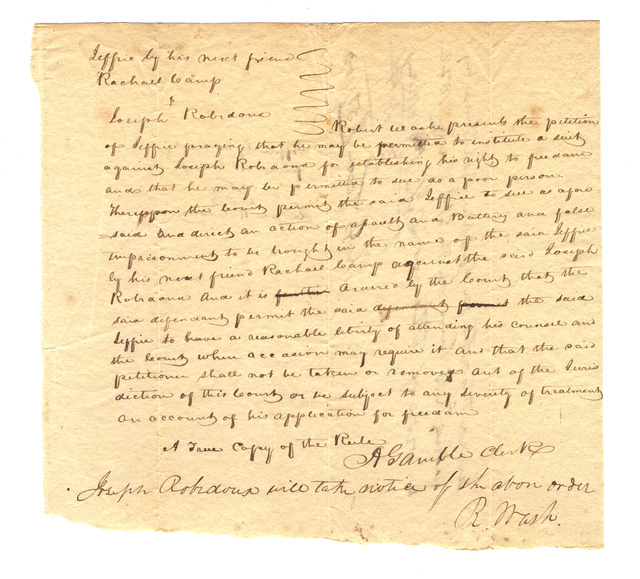 Jeffrie by his next friend
Rachael Camp
Joseph Robidoux
Robert Wash presents the petition
of Jeffrie praying that he may be permitted to institute a suit
against Joseph Robidoux for establishing his right to freedom
and that he may be permitted to sue as a poor person
Thereupon the Court permit the said Jeffrie to sue as afore
said and direct an action of assault and Battery and false
imprisonment to be brought in the name of the said Jeffrie
by his next friend Rachael Camp against the said Joseph
Robidoux And it is further ordered by the Court that the
said defendant permit the said defendant permit the said
Jeffrie to have a reasonable liberty of attending his counsel and
the Court when occasion may require it and that the said
petitioner shall not be taken or removed out of the Juris
diction of this Court or be subject to any severity of treatment
on account of his application for freedom
A True Copy of the Rule
A Gamble Clerk
Joseph Robidoux will take notice of the above order
R. Wash.